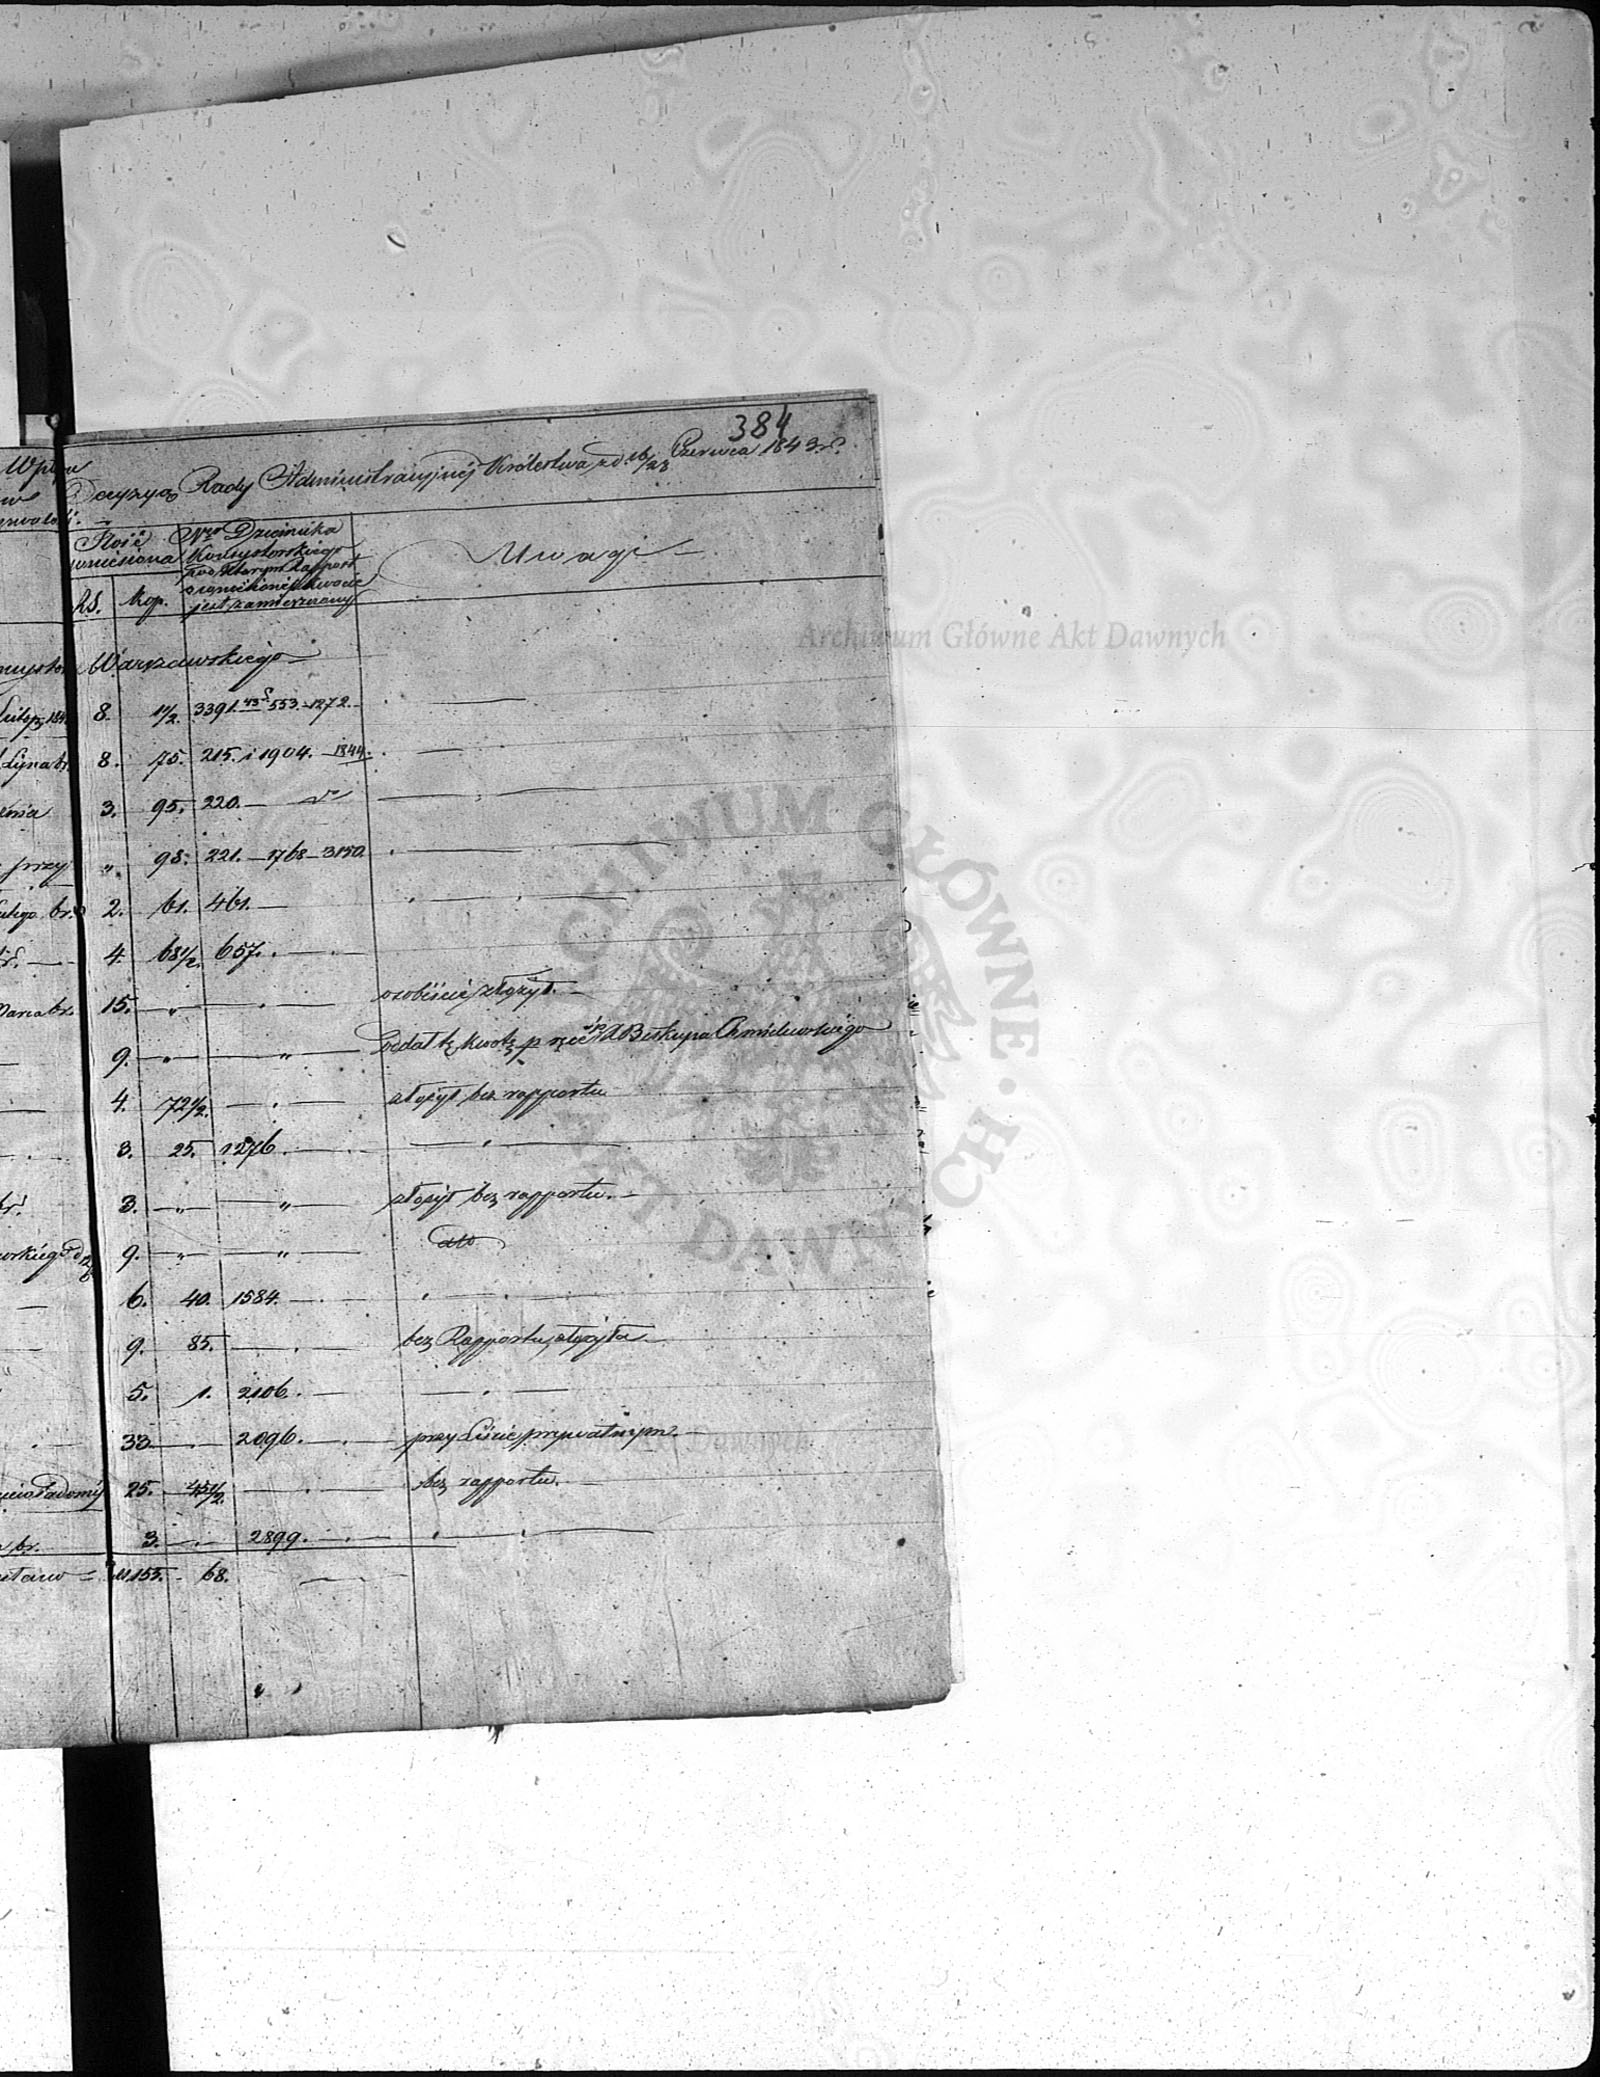 384
Decyzyą Rady Administracyjnéj Królestwa z d. 16/28 Czerwca 1843 r.
Ilość wniesiona
Nro Dziennika
Konsystorskiego
pod którym Rapport
o wniesionéj kwocie
jest zamieszczony
Uwagi
RS. Kop.
Warszawskiego
8. 1 1/2. 3391. 43 553. 1272.
8. 75. 215. i 1904. 1844.
3. 95. 220. — do
„ 98. 221. — 1768 — 3150.
2. 61. 461. —
4. 68 1/2. 657. —
15. „ — osobiście złożył. —
9. „ „ — oddał tę kwotę p ręce JX Biskupa Chmielewskiego
4. 72 1/2. — złożył bez rapportu
3. 25. 1276. —
3. „ „ — złożył bez rapportu. —
9. „ „ — dto
6. 40. 1584. —
9. 85. — bez Rapportu złożyła —
5. 1. 2106. —
33. — 2096. — przy Liście prywatnym. —
25. 45 1/2. — bez rapportu. —
3. — 2899. —
153. - 68.
Archiwum Główne Akt Dawnych
ARCHIWUM GŁÓWNE AKT DAWNYCH